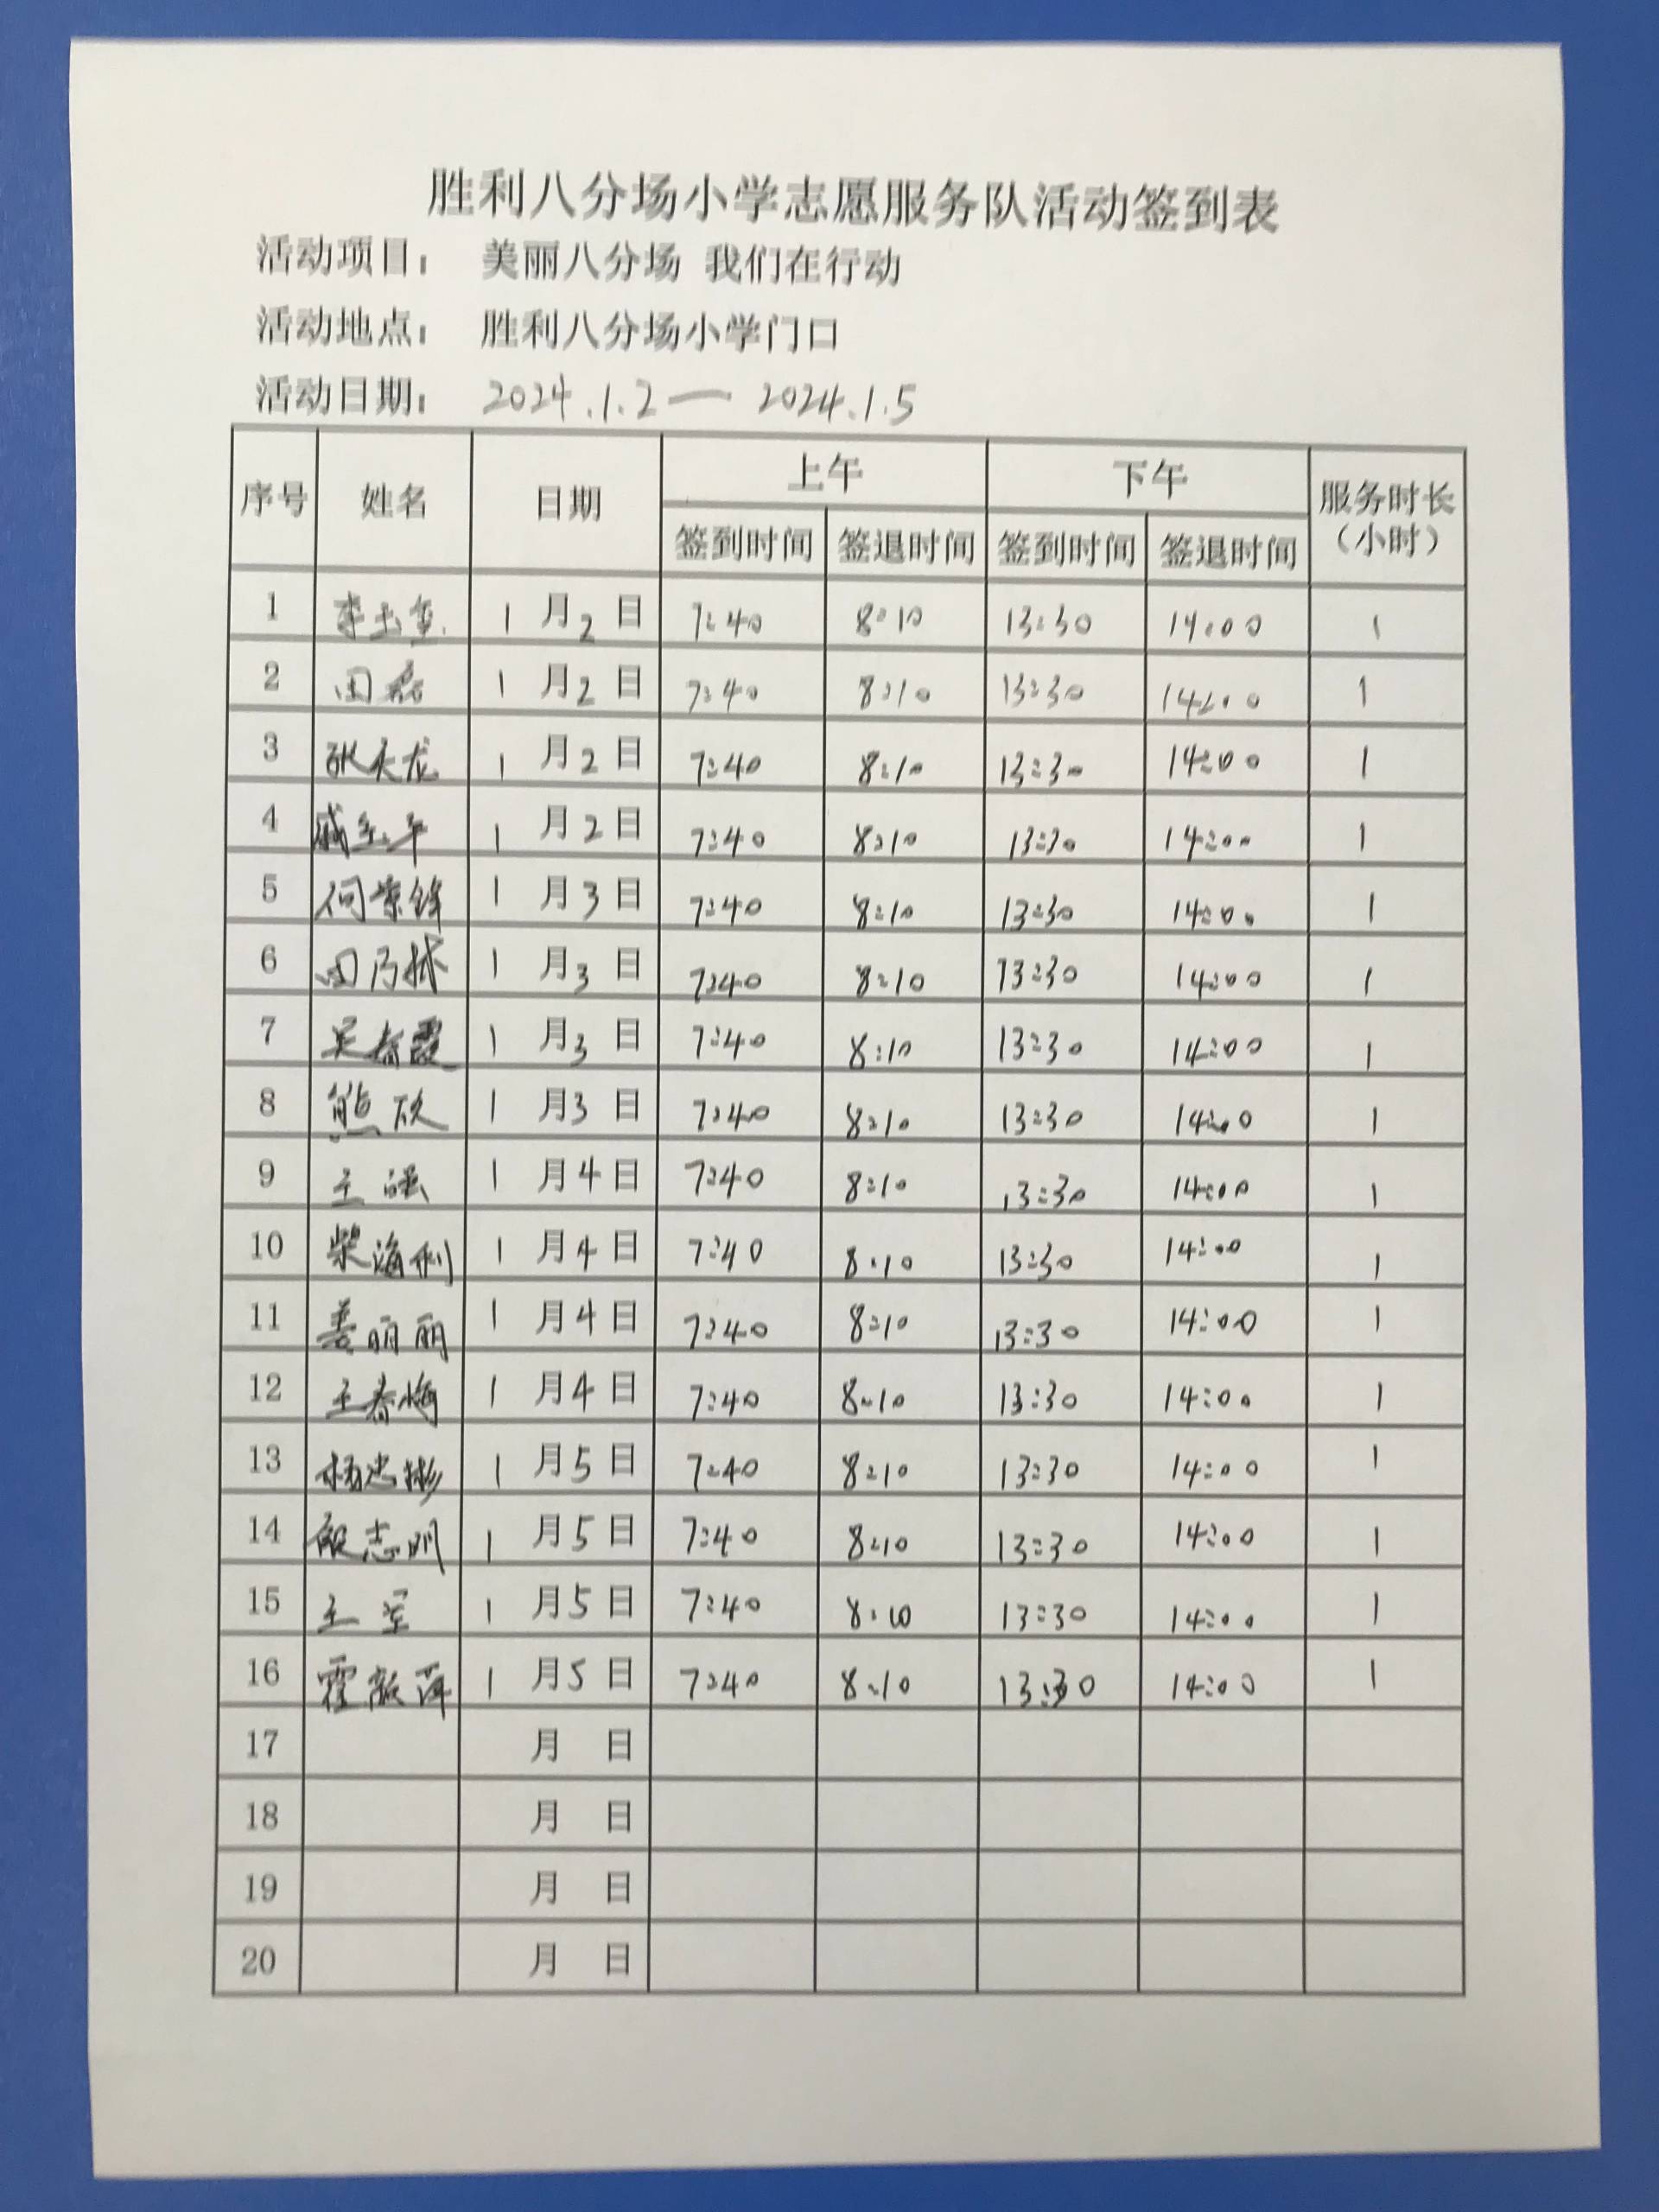 胜利八分场小学志愿服务队活动签到表
活动项目: 美丽八分场 我们在行动
活动地点: 胜利八分场小学门口
活动日期: 2024.1.2—2024.1.5
序号 姓名 日期 上午 下午 服务时长(小时)
签到时间 签退时间 签到时间 签退时间
1 1月2日 7:40 8:10 13:30 14:00 1
2 田磊 1月2日 7:40 8:10 13:30 14:00 1
3 张天龙 1月2日 7:40 8:10 13:30 14:00 1
4 1月2日 7:40 8:10 13:30 14:00 1
5 何景锋 1月3日 7:40 8:10 13:30 14:00 1
6 田乃 1月3日 7:40 8:10 13:30 14:00 1
7 吴春霞 1月3日 7:40 8:10 13:30 14:00 1
8 熊欣 1月3日 7:40 8:10 13:30 14:00 1
9 王 1月4日 7:40 8:10 13:30 14:00 1
10 柴海利 1月4日 7:40 8:10 13:30 14:00 1
11 姜丽丽 1月4日 7:40 8:10 13:30 14:00 1
12 王春梅 1月4日 7:40 8:10 13:30 14:00 1
13 杨忠彬 1月5日 7:40 8:10 13:30 14:00 1
14 殷志明 1月5日 7:40 8:10 13:30 14:00 1
15 王军 1月5日 7:40 8:10 13:30 14:00 1
16 霍 1月5日 7:40 8:10 13:30 14:00 1
17 月 日
18 月 日
19 月 日
20 月 日